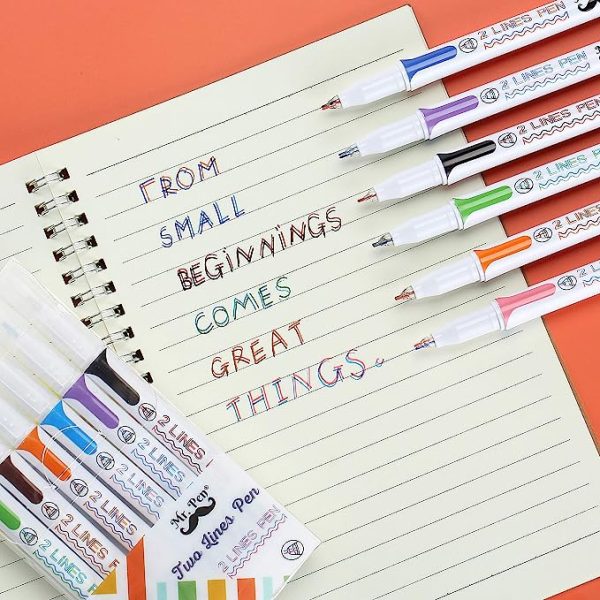 FROM
SMALL
BEGINNINGS
COMES
GREAT
THINGS.
2 LINES PEN
2 LINES PEN
2 LINES PEN
2 LINES PEN
2 LINES PEN
2 LINES
2 LINES
2 LINES
2 LINES
2 LINES PEN
2 LINES
Mr. Pen®
Two Lines Pen
2 LINES PEN